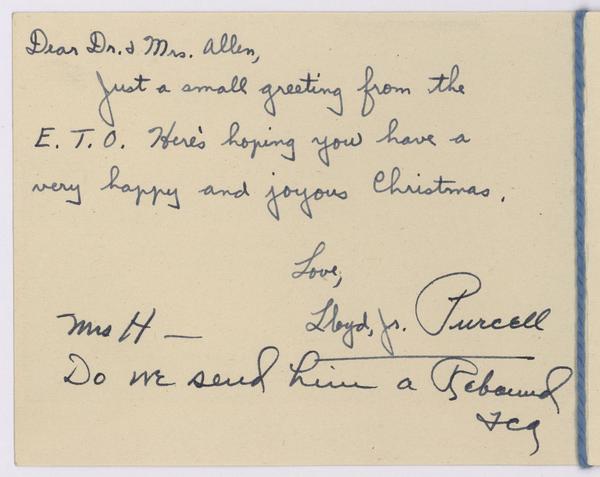 Dear Dr. & Mrs. Allen,
Just a small greeting from the
E. T. O. Here's hoping you have a
very happy and joyous Christmas.
Love,
Lloyd, Jr. Purcell
Mrs H —
Do we send him a Rebound